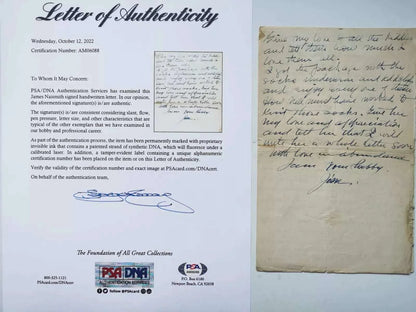 Letter of Authenticity
Wednesday, October 12, 2022
Certification Number: AM06088
To Whom it May Concern:
PSA/DNA Authentication Services has examined this
James Naismith signed handwritten letter. In our opinion,
the aforementioned signature(s) is/are authentic.
The signature(s) is/are consistent considering slant, flow,
pen pressure, letter size, and other characteristics that are
typical of the other exemplars that we have examined in our
hobby and professional career
As part of the authentication process, the item been permanently marked with proprietary
invisible ink that contains a patented strand of synthetic DNA, which will fluoresce under a
calibrated laser. In addition, a tamper-evident label containing a unique alphanumeric
certification number has been placed on the item or on this Letter of Authenticity.
Verify the validity of the certification number and exact image at PSAcard.com/DNAcert.
On behalf of the authentication team,
The Foundation of All Great Collections
800-325-1121
PSAcard.com/DNAcert
PSA/DNA
AUTHENTICATION SERVICES
PSAcard
PSA
P.O. Box 6180
Newport Beach, CA 92658
Give my love to all the kiddies
and tell them how much I
love them all.
I got the package with the
socks underwear and
and enjoy every one of them
How Nell must have worked to
knit those socks. Give her
my love and appreciation
and tell her that I will
write her a whole letter soon
with love in abundance
I am Your Hubby
Jim.